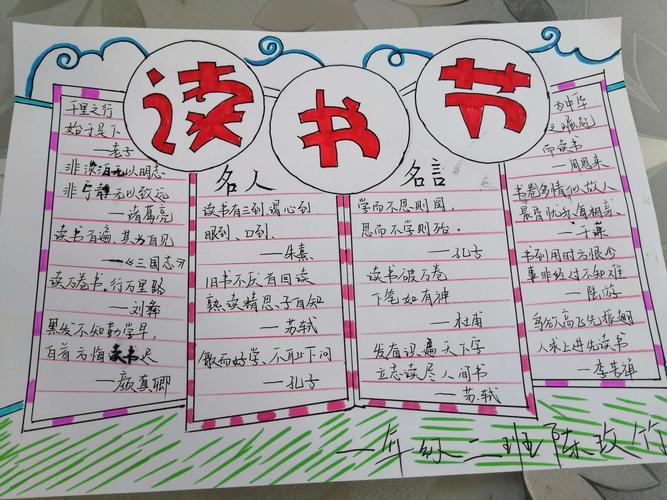 读书节
千里之行
始于足下
——老子
非淡泊无以明志
非宁静无以致远
——诸葛亮
读书百遍,其义自见
——《三国志》
读万卷书,行万里路
——刘彝
黑发不知勤学早,
白首方悔读书迟
——颜真卿
名人
读书有三到,谓心到
眼到、口到
——朱熹
旧书不厌百回读
熟读精思子自知
——苏轼
敏而好学、不耻下问
——孔子
名言
学而不思则罔,
思而不学则殆。
——孔子
读书破万卷
下笔如有神
——杜甫
发奋识遍天下字
立志读尽人间书
——苏轼
为中华
之崛起
而读书
——周恩来
书卷多情似故人
晨昏忧乐每相亲
——于谦
书到用时方恨少
事非经过不知难
——陆游
鸟欲高飞先振翅
人求上进先读书
——李苦禅
一年级二班陈玫竹